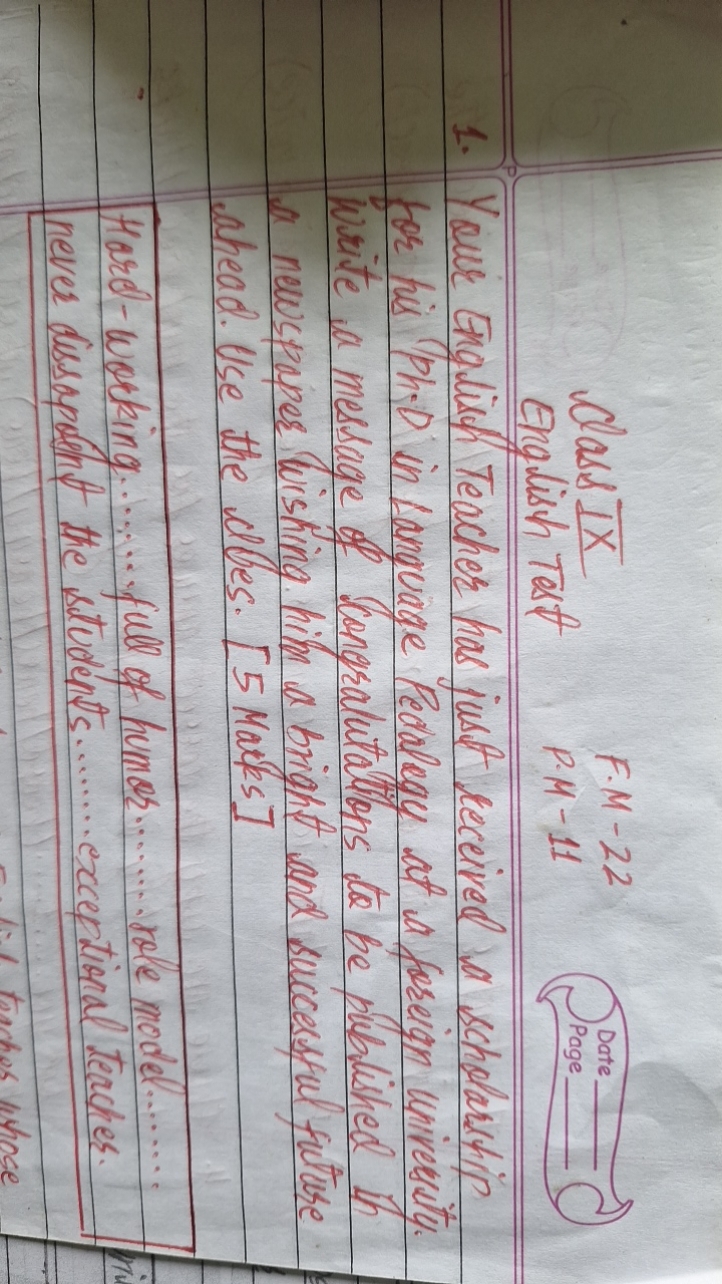 Class IX
English Test
F.M - 22
P.M - 11
Date
Page
1. Your English Teacher has just received a scholarship
for his Ph.D in Language Pedalogy at a foreign university.
Write a message of congralutations to be published in
a newspaper wishing him a bright and successful future
ahead. Use the clues. [5 Marks]
Hard-working........full of humor........role model.......
never dissapoint the students........exceptional teacher.
English teacher whose